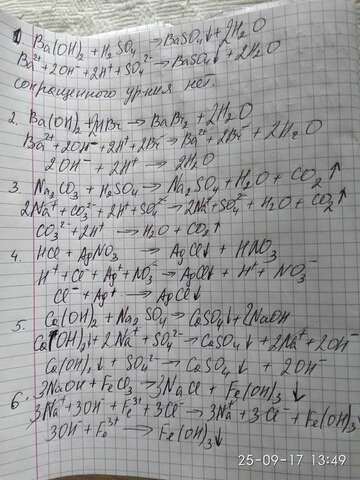 1 Ba(OH)₂ + H₂SO₄ → BaSO₄↓ + 2H₂O
Ba²⁺ + 2OH⁻ + 2H⁺ + SO₄²⁻ → BaSO₄↓ + 2H₂O
сокращенного ур-ния нет.
2. Ba(OH)₂ + 2HBr → BaBr₂ + 2H₂O
Ba²⁺ + 2OH⁻ + 2H⁺ + 2Br⁻ → Ba²⁺ + 2Br⁻ + 2H₂O
2OH⁻ + 2H⁺ → 2H₂O
3 Na₂CO₃ + H₂SO₄ → Na₂SO₄ + H₂O + CO₂↑
2Na⁺ + CO₃²⁻ + 2H⁺ + SO₄²⁻ → 2Na⁺ + SO₄²⁻ + H₂O + CO₂↑
CO₃²⁻ + 2H⁺ → H₂O + CO₂↑
4. HCl + AgNO₃ → AgCl↓ + HNO₃
H⁺ + Cl⁻ + Ag⁺ + NO₃⁻ → AgCl↓ + H⁺ + NO₃⁻
Cl⁻ + Ag⁺ → AgCl↓
5. Ca(OH)₂ + Na₂SO₄ → CaSO₄↓ + 2NaOH
Ca(OH)₂↓ + 2Na⁺ + SO₄²⁻ → CaSO₄↓ + 2Na⁺ + 2OH⁻
Ca(OH)₂↓ + SO₄²⁻ → CaSO₄↓ + 2OH⁻
6. 3NaOH + FeCl₃ → 3NaCl + Fe(OH)₃↓
3Na⁺ + 3OH⁻ + Fe³⁺ + 3Cl⁻ → 3Na⁺ + 3Cl⁻ + Fe(OH)₃↓
3OH⁻ + Fe³⁺ → Fe(OH)₃↓
25-09-17 13:49